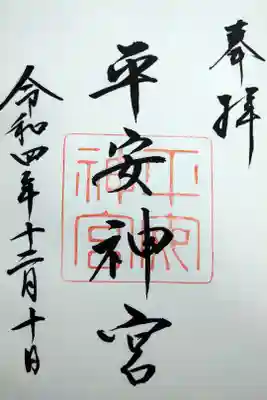 奉拝
平安神宮
令和四年十二月十日
平安神宮